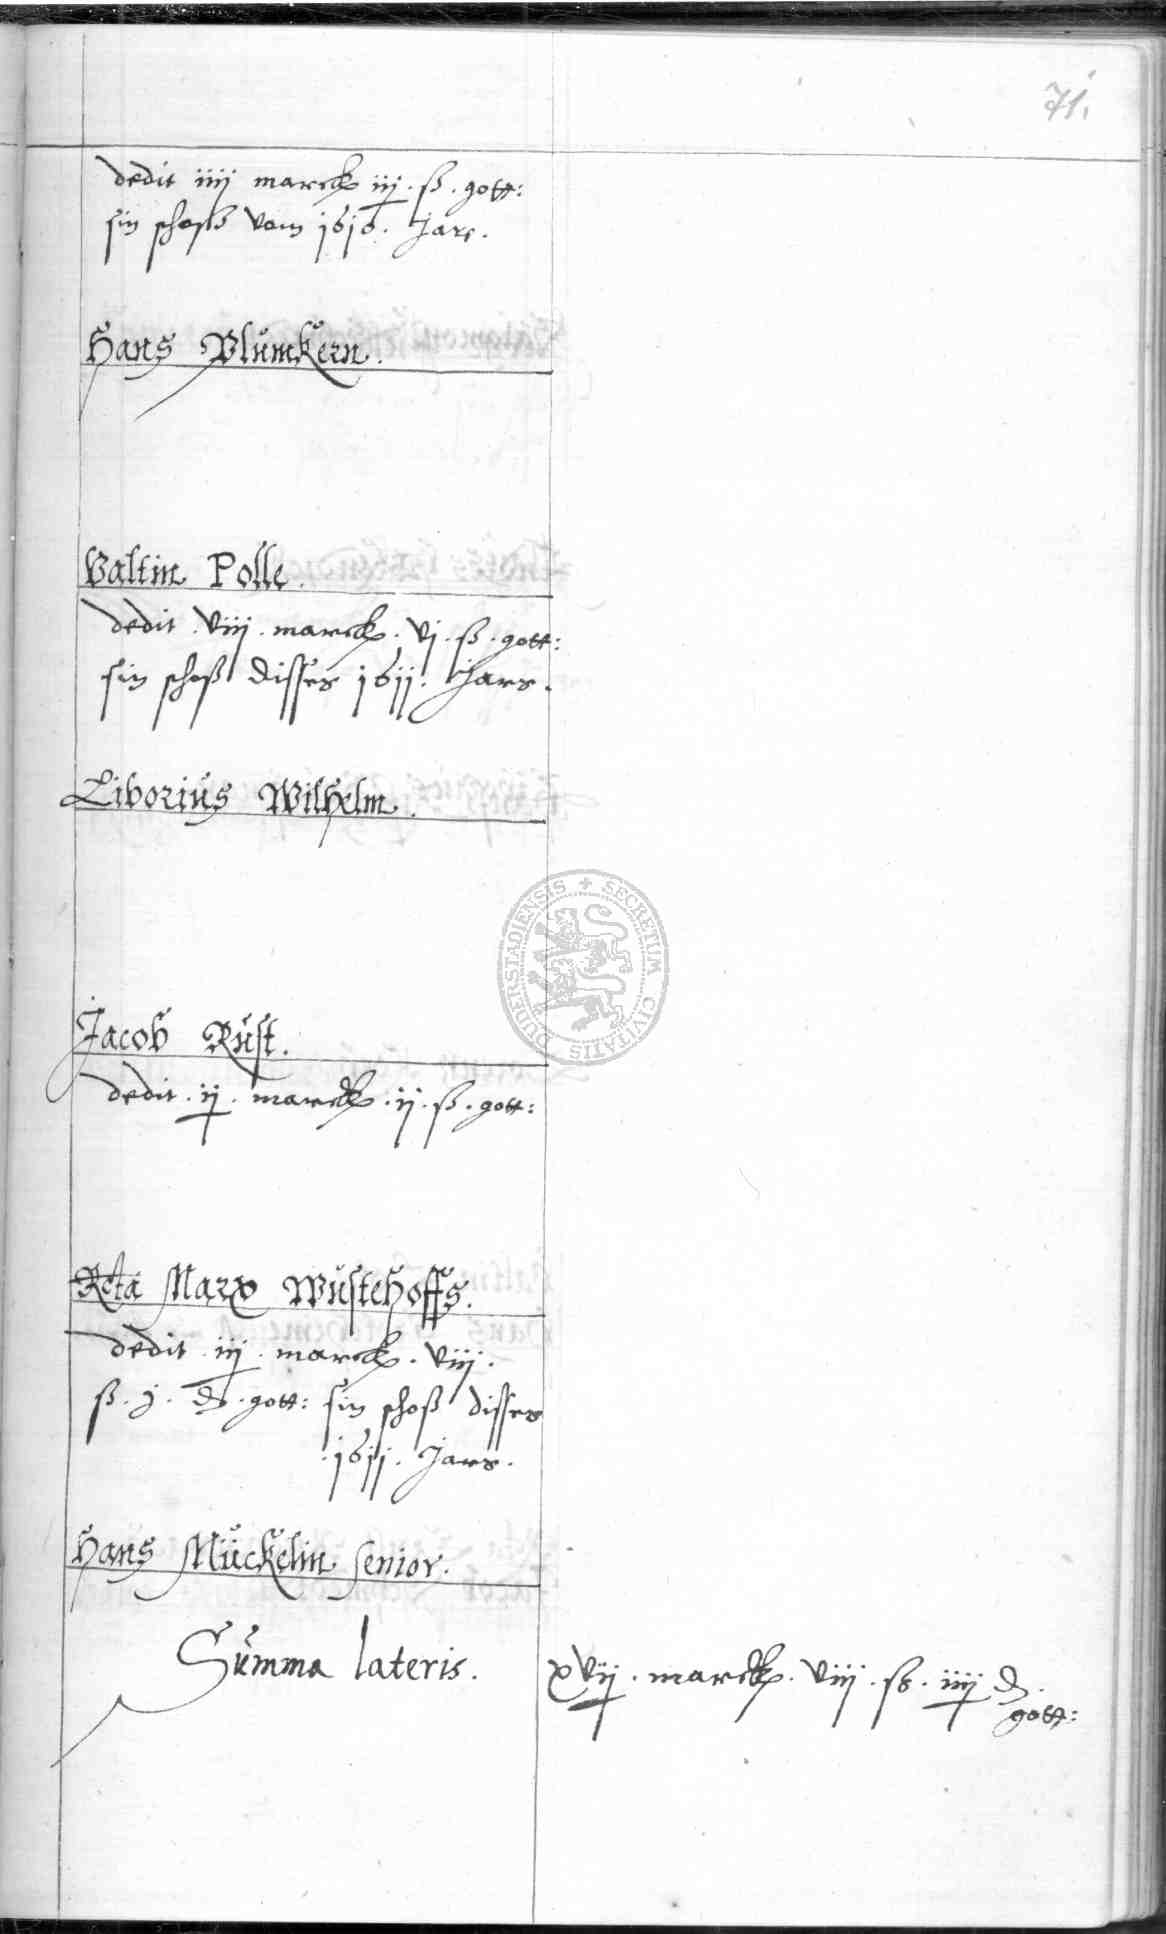 71.
dedit iiij marck iij . ß . gott:
sin schoß vom 1610. Jare.
Hans Plümkern.
Valtin Polle.
dedit . viij . marck . vj . ß . gott:
sin schoß disses 1611. Jars.
Liborius Wilhelm.
SECRETUM CIVITATIS DUDERSTADIENSIS
Jacob Rust.
dedit . ij . marck . ij . ß . gott:
Rcta Marx Wüstehoffs.
dedit . iij . marck . viij .
ß . j . d . gott: sin schoß disses
. 1611 . Jars .
Hans Mückelin senior.
Summa lateris. xvij . marck . viij . ß . iiij d .
gott: